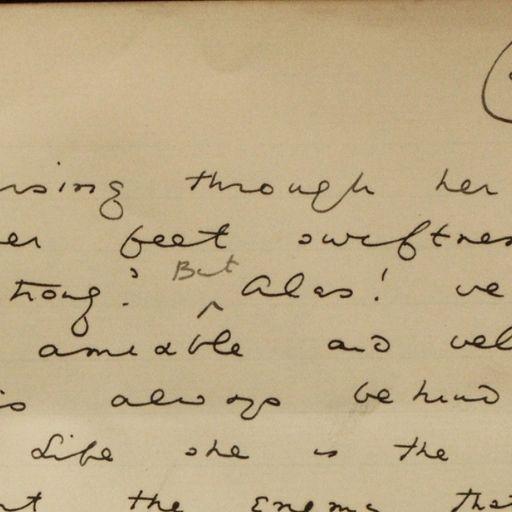 rsing through her
er feet swiftnes
trong? But Alas! ve
amiable and vel
is always behind
Life she is the
nt the Enemy that